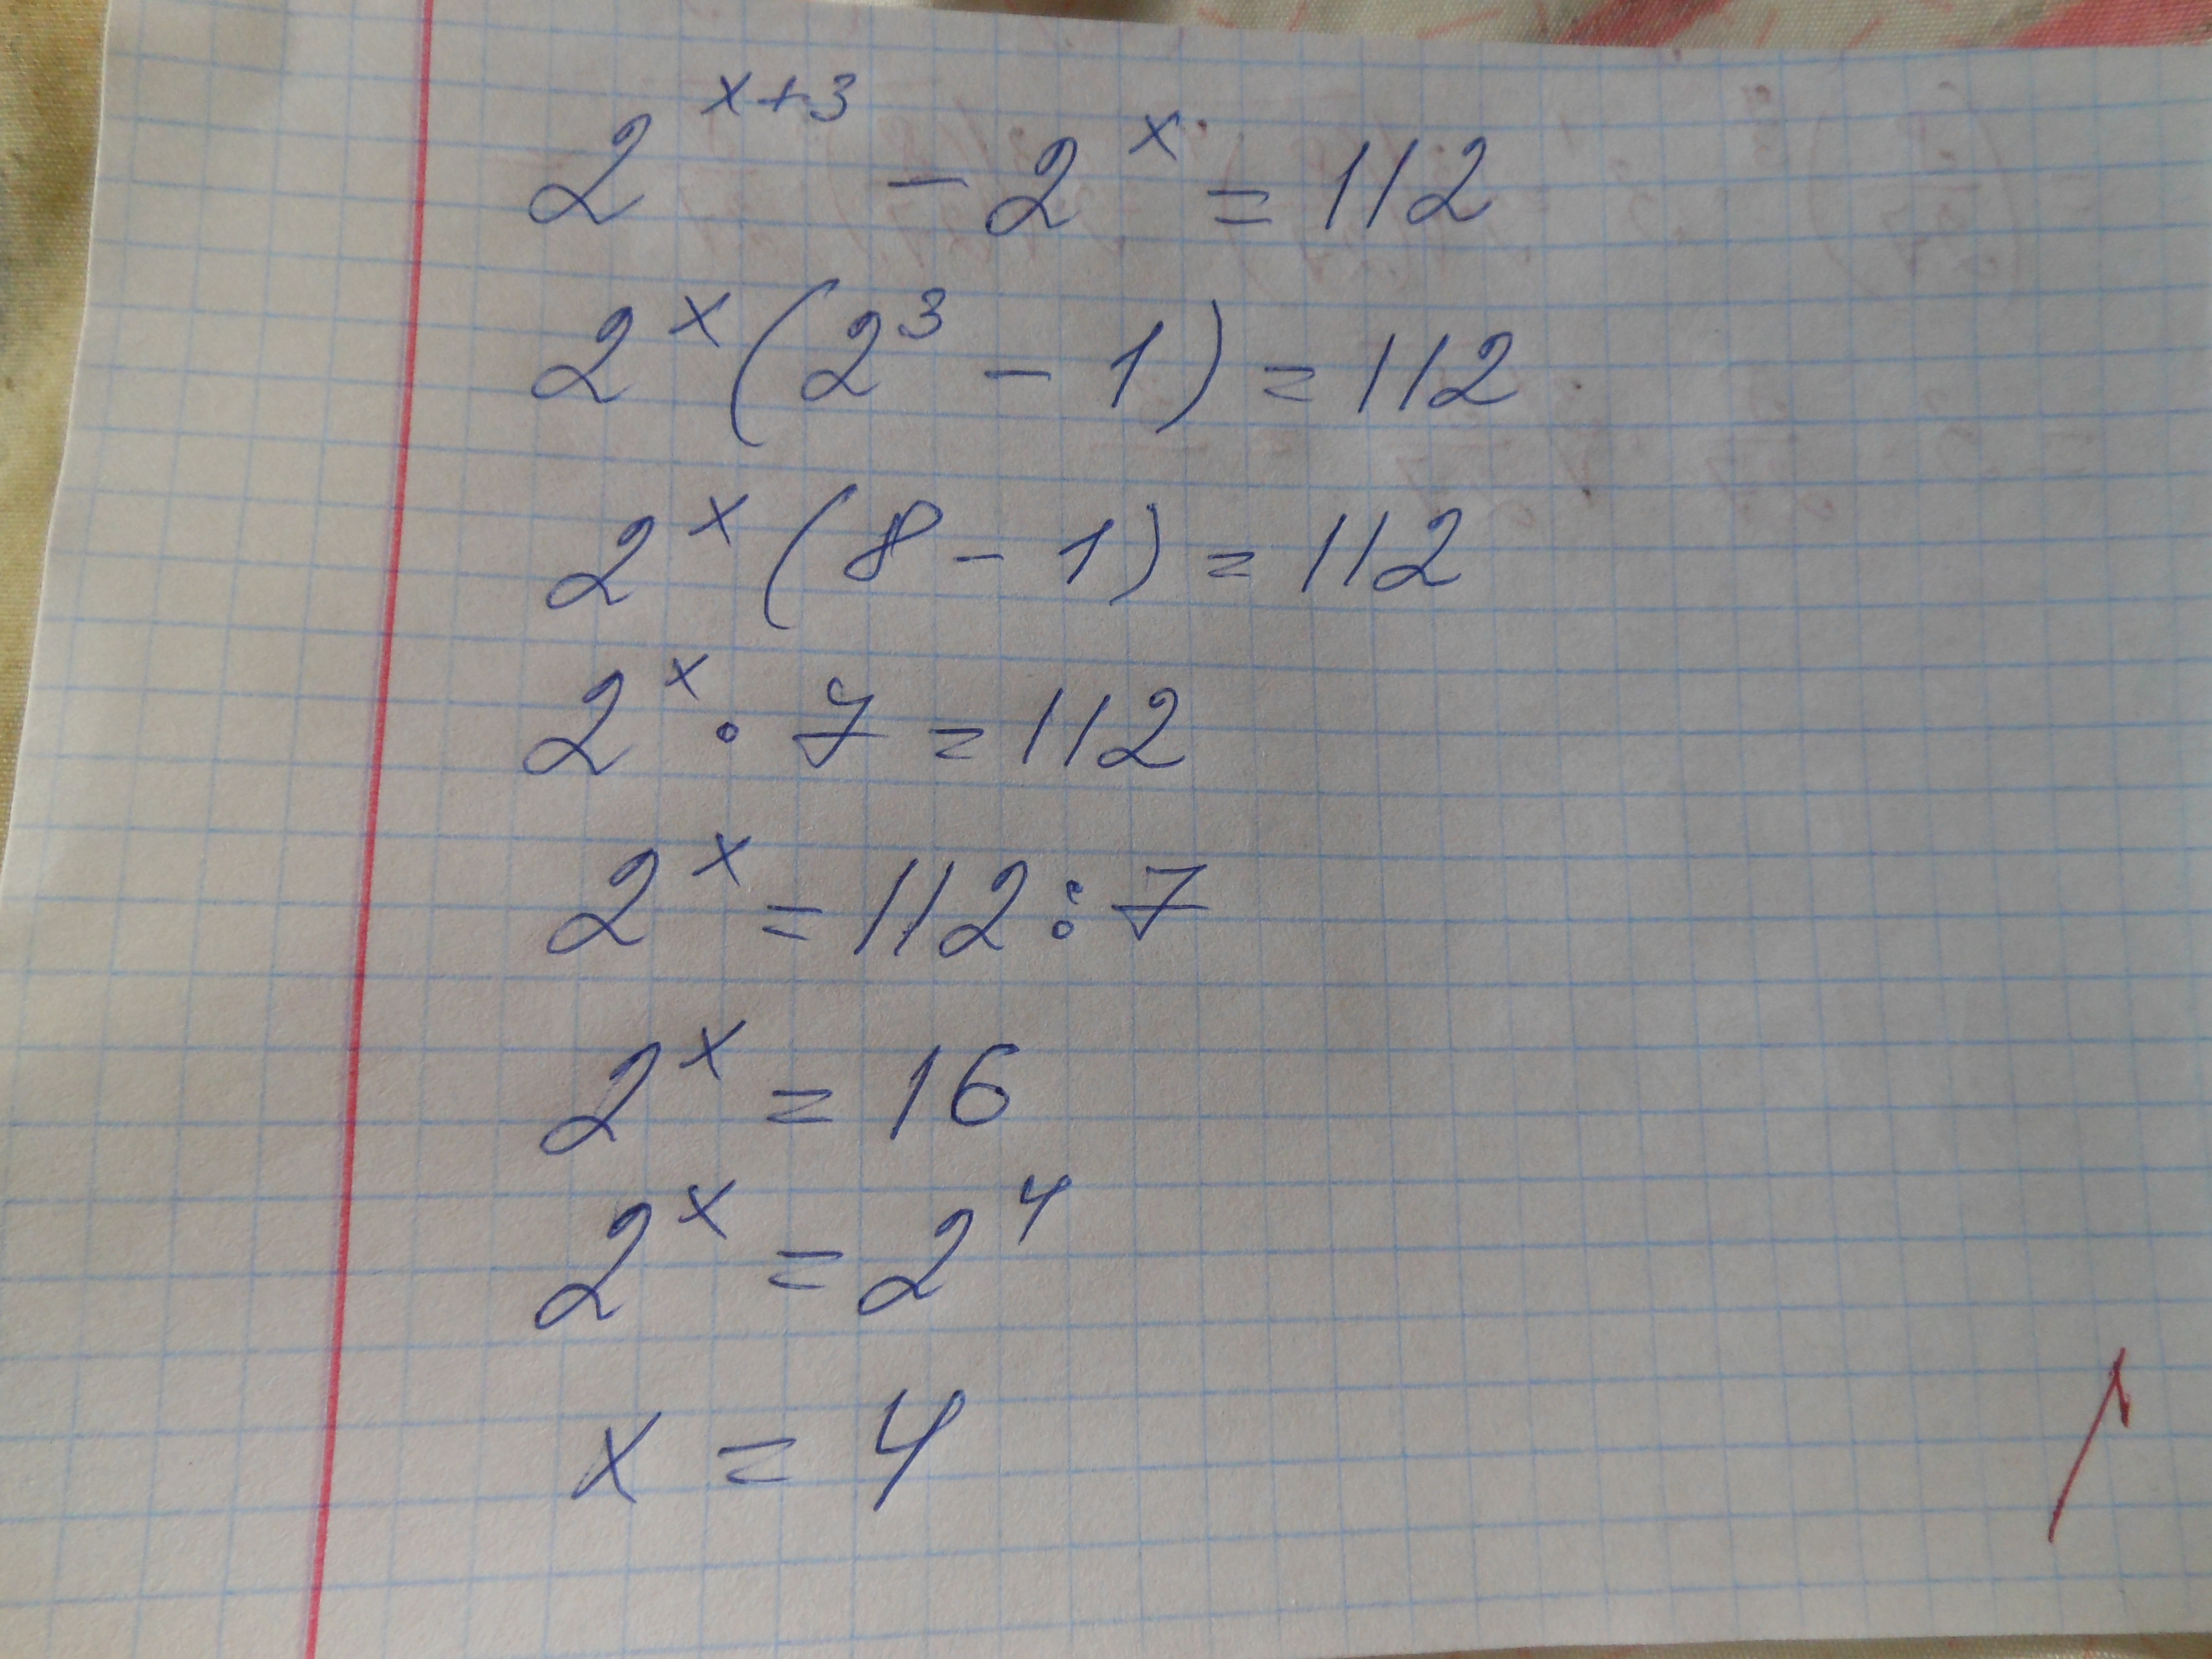 2^(x+3) - 2^x = 112
2^x (2^3 - 1) = 112
2^x (8 - 1) = 112
2^x · 7 = 112
2^x = 112 : 7
2^x = 16
2^x = 2^4
x = 4